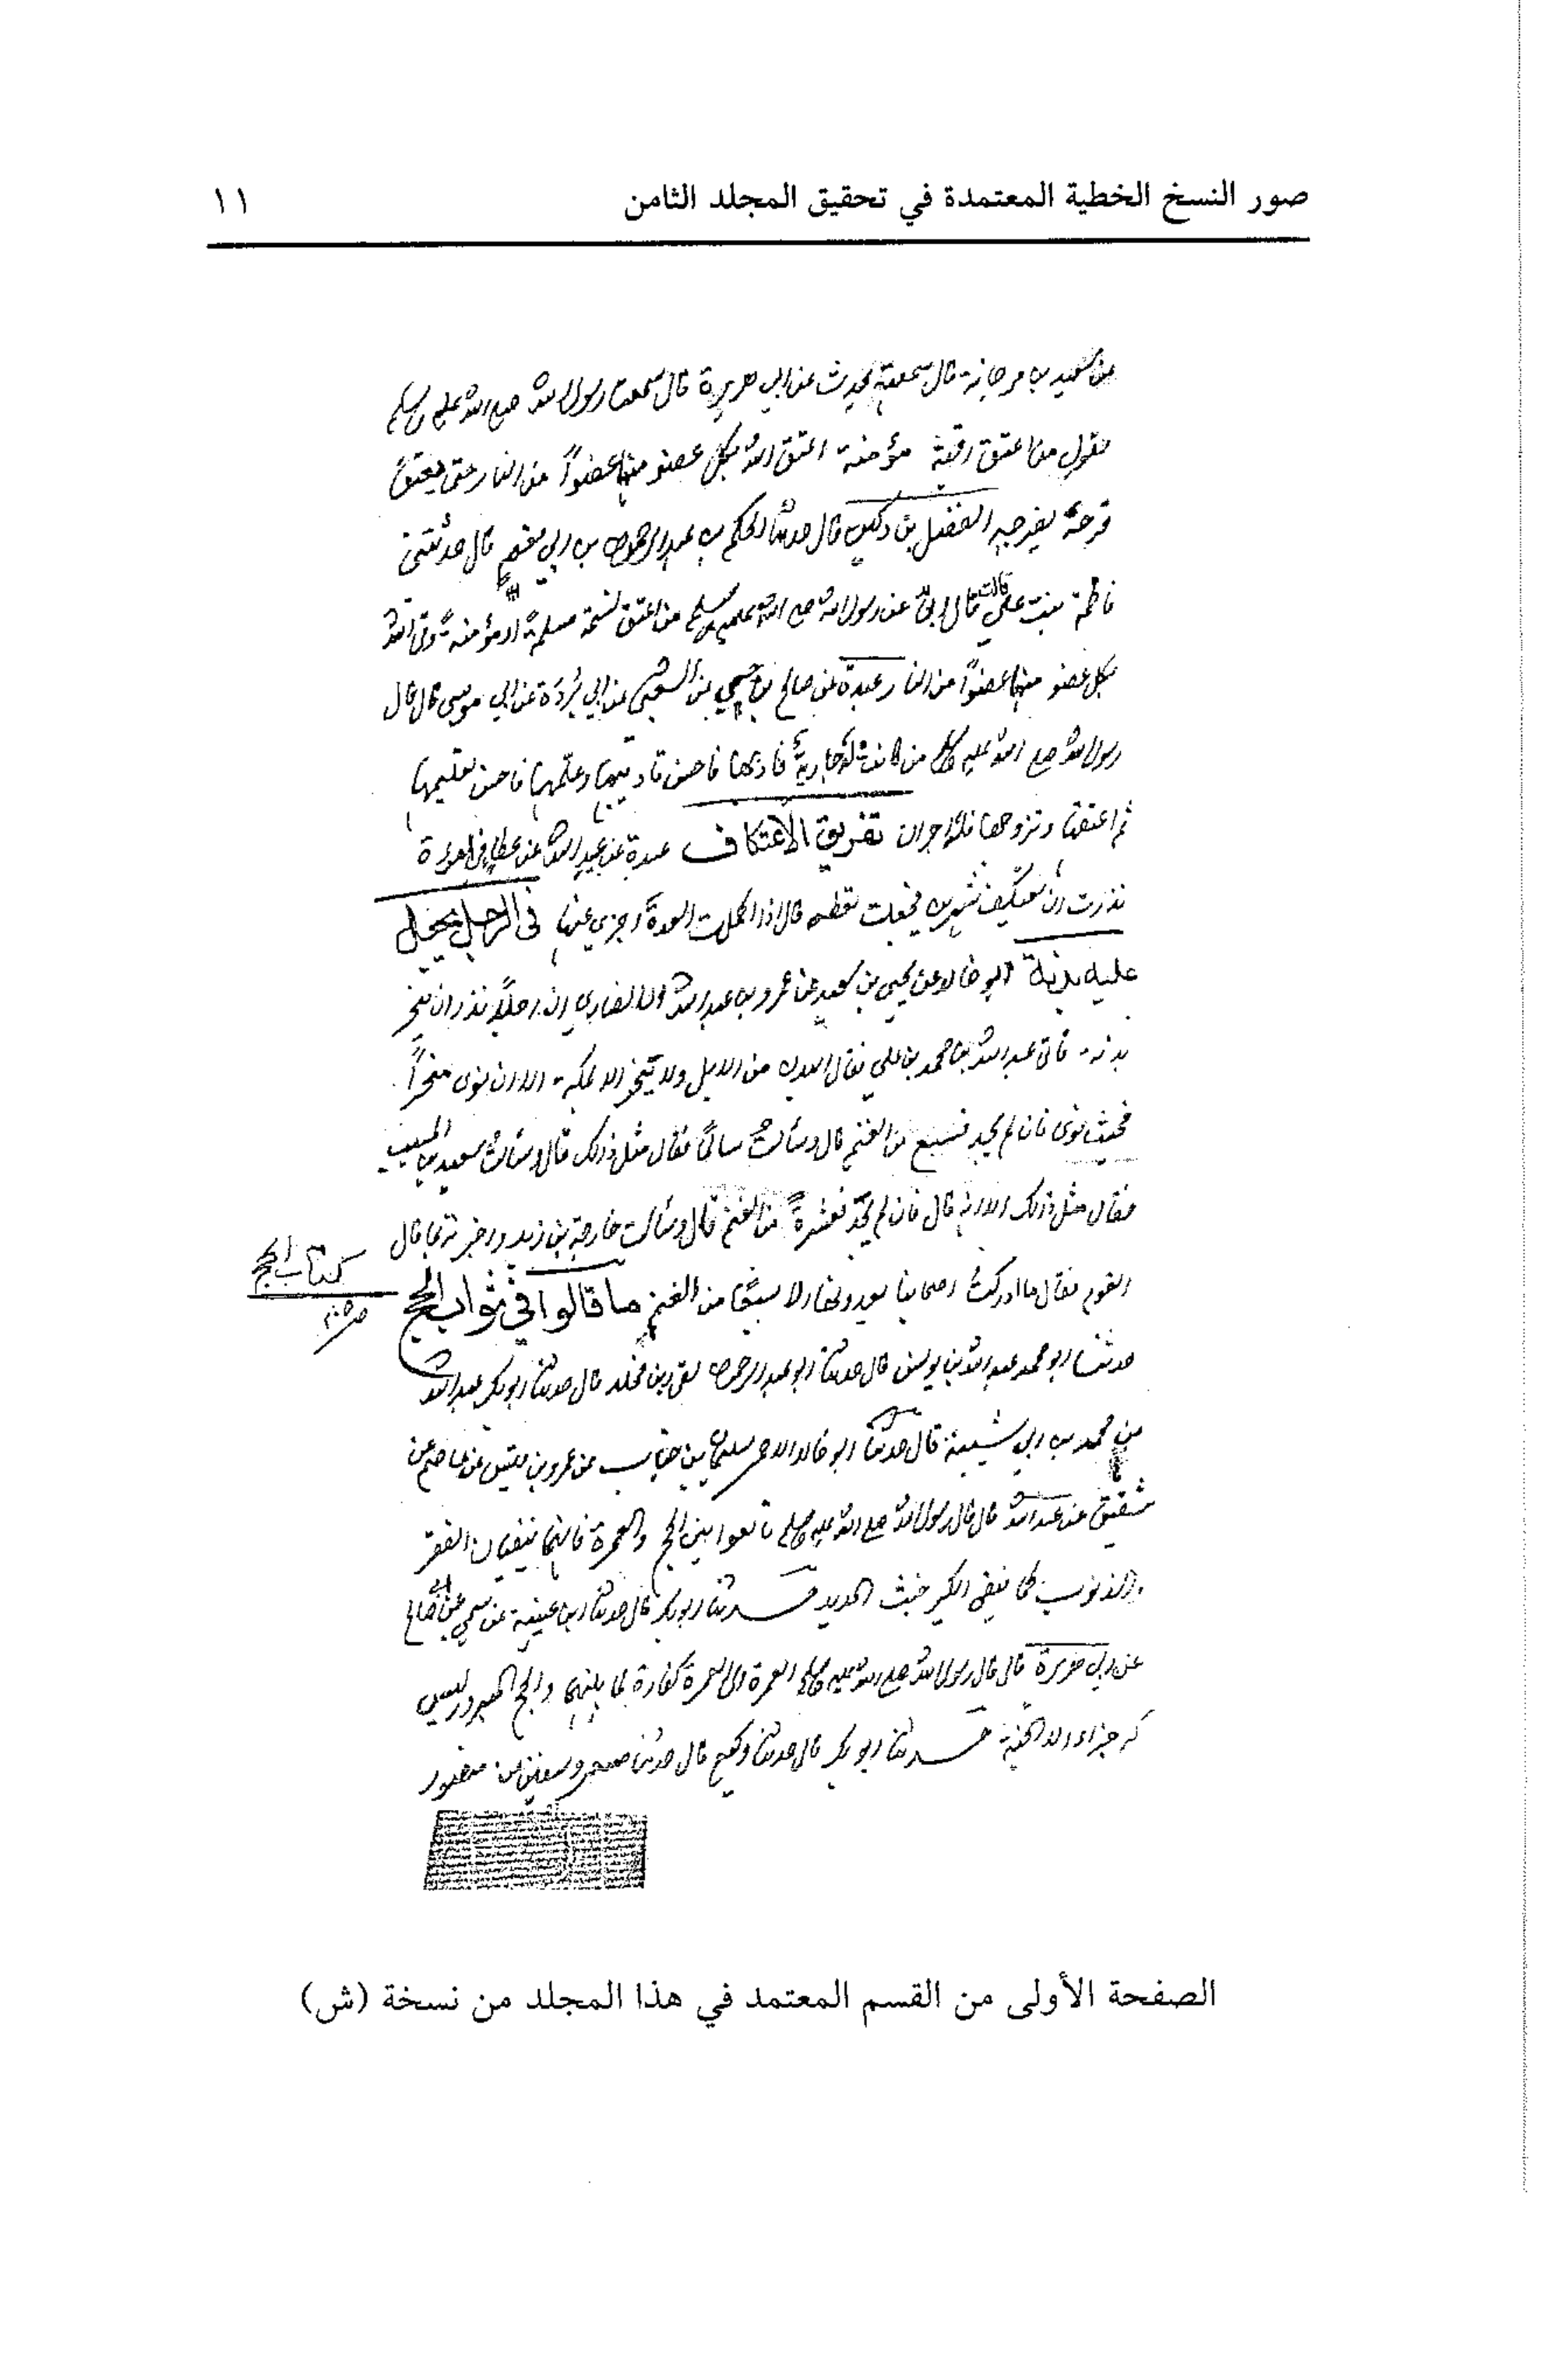 صور النسخ الخطية المعتمدة في تحقيق المجلد الثامن ١١
عن سعيد بن مرجانة قال سمعته يحدث عن ابي هريرة قال سمعت رسول الله صلى الله عليه وسلم
يقول من اعتق رقبة مؤمنة اعتق الله بكل عضو منها عضواً من النار حتى يعتق
فرجه بفرجه الفضل بن دكين قال حدثنا الحكم بن عبد الرحمن بن ابي نعم قال حدثتني
فاطمة بنت علي قالت قال ابي عن رسول الله صلى الله عليه وسلم من اعتق نسمة مسلمة او مؤمنة وقى الله
بكل عضو منها عضواً من النار عبدة عن صالح بن حيي عن الشعبي عن ابي بردة عن ابي موسى قال قال
رسول الله صلى الله عليه وسلم من كانت له جارية فادبها فاحسن تاديبها وعلمها فاحسن تعليمها
ثم اعتقها وتزوجها فله اجران تفريق الاعتكاف عبدة عن عبد الله عن عطاء في امرءة
نذرت أن تعتكف شهرين فجعلت تقطع قال اذا اكملت العدة اجزى عنها في الرجل يجعل
عليه بدنة ابو خالد عن يحيى بن سعيد عن عمرو بن عبد الله الانصاري ان رجلاً نذر ان ينحر
بدنة فاتى عبد الله بن محمد بن علي فقال البدن من الابل ولا تنحر الا بمكة الا ان نوى منحراً
فحيث نوى فان لم يجد فسبع من الغنم قال وسألت سالماً فقال مثل ذلك قال وسألت سعيد بن المسيب
فقال مثل ذلك الا انه قال فان لم يجد فعشرة من الغنم قال وسألت خارجة بن زيد واخبرته بما قال
القوم فقال ما ادركت اصحابنا يعدونها الا سبعا من الغنم ما قالوا في ثواب الحج
كتاب الحج
حدثنا ابو محمد عبد الله بن يونس قال حدثنا ابو عبد الرحمن بقي بن مخلد قال حدثنا ابو بكر عبد الله
بن محمد بن ابي شيبة قال حدثنا ابو خالد الاحمر سليمان بن حيان عن عمرو بن قيس عن عاصم عن
شقيق عن عبد الله قال قال رسول الله صلى الله عليه وسلم تابعوا بين الحج والعمرة فانهما ينفيان الفقر
والذنوب كما ينفي الكير خبث الحديد حدثنا ابو بكر قال حدثنا ابن عيينة عن سمي عن ابي صالح
عن ابي هريرة قال قال رسول الله صلى الله عليه وسلم العمرة الى العمرة كفارة لما بينهما والحج المبرور ليس
له جزاء الا الجنة حدثنا ابو بكر قال حدثنا وكيع قال حدثنا مسعر وسفين عن منصور
الصفحة الأولى من القسم المعتمد في هذا المجلد من نسخة (ش)